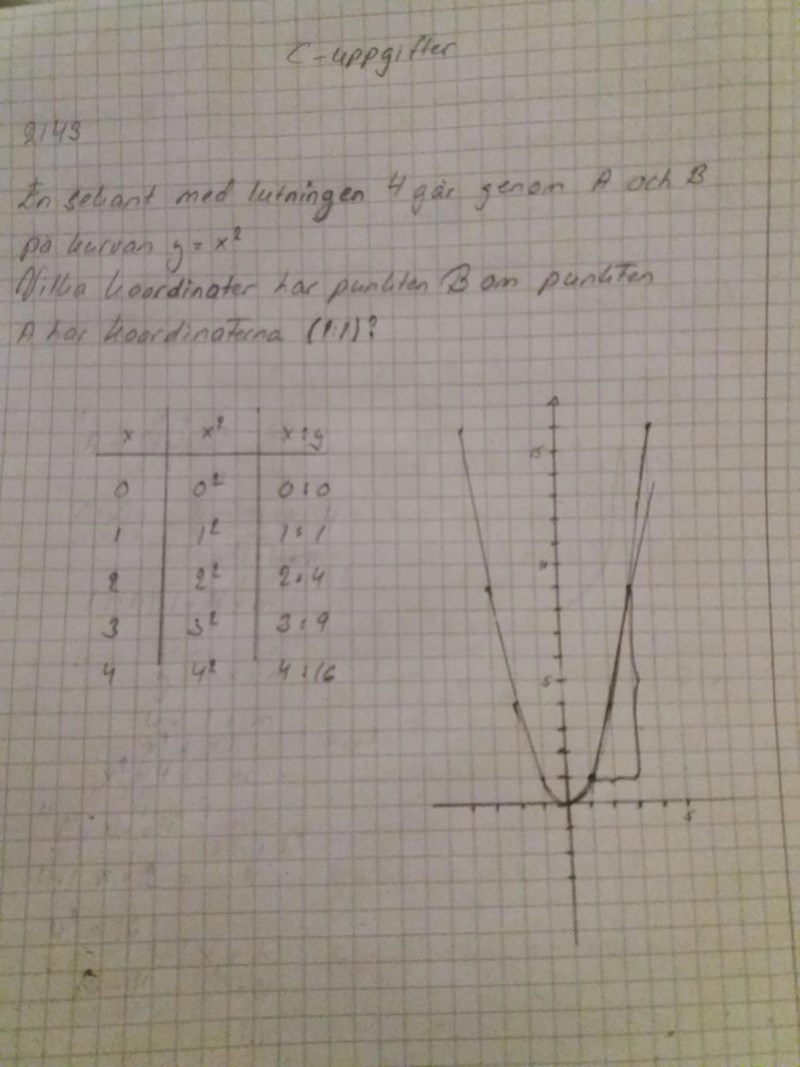 C-uppgifter
2143
En sekant med lutningen 4 går genom A och B
på kurvan y = x²
Vilka koordinater har punkten B om punkten
A har koordinaterna (1:1)?
x x² x:y
0 0² 0:0
1 1² 1:1
2 2² 2:4
3 3² 3:9
4 4² 4:16
15
5
5